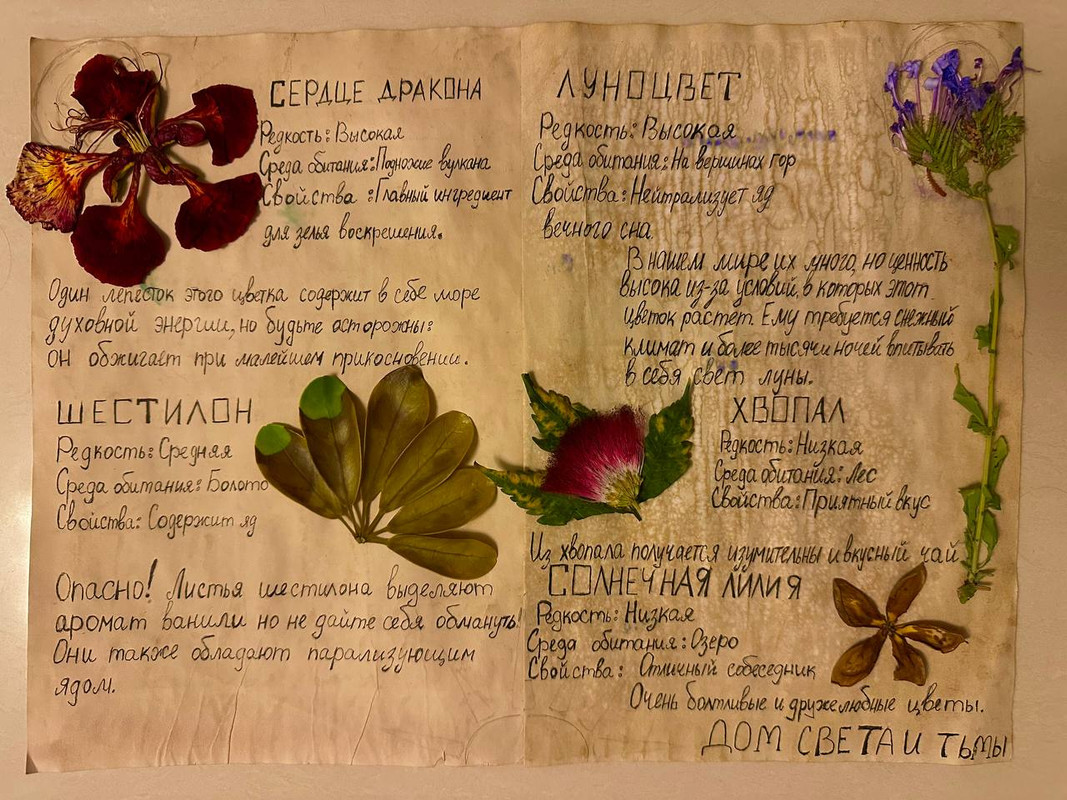 СЕРДЦЕ ДРАКОНА
Редкость: Высокая
Среда обитания: Подножие вулкана
Свойства : Главный ингредиент
для зелья воскрешения.
Один лепесток этого цветка содержит в себе море
духовной энергии, но будьте осторожны:
он обжигает при малейшем прикосновении.
ШЕСТИЛОН
Редкость: Средняя
Среда обитания: Болото
Свойства: Содержит яд
Опасно! Листья шестилона выделяют
аромат ванили но не дайте себя обмануть!
Они также обладают парализующим
ядом.
ЛУНОЦВЕТ
Редкость: Высокая
Среда обитания: На вершинах гор
Свойства: Нейтрализует яд
вечного сна.
В нашем мире их много, но ценность
высока из-за условий, в которых этот
цветок растёт. Ему требуется снежный
климат и более тысячи ночей впитывать
в себя свет луны.
ХВОПАЛ
Редкость: Низкая
Среда обитания: Лес
Свойства: Приятный вкус
Из хвопала получается изумительны и вкусный чай.
СОЛНЕЧНАЯ ЛИЛИЯ
Редкость: Низкая
Среда обитания: Озеро
Свойства: Отличный собеседник
Очень болтливые и дружелюбные цветы.
ДОМ СВЕТА И ТЬМЫ